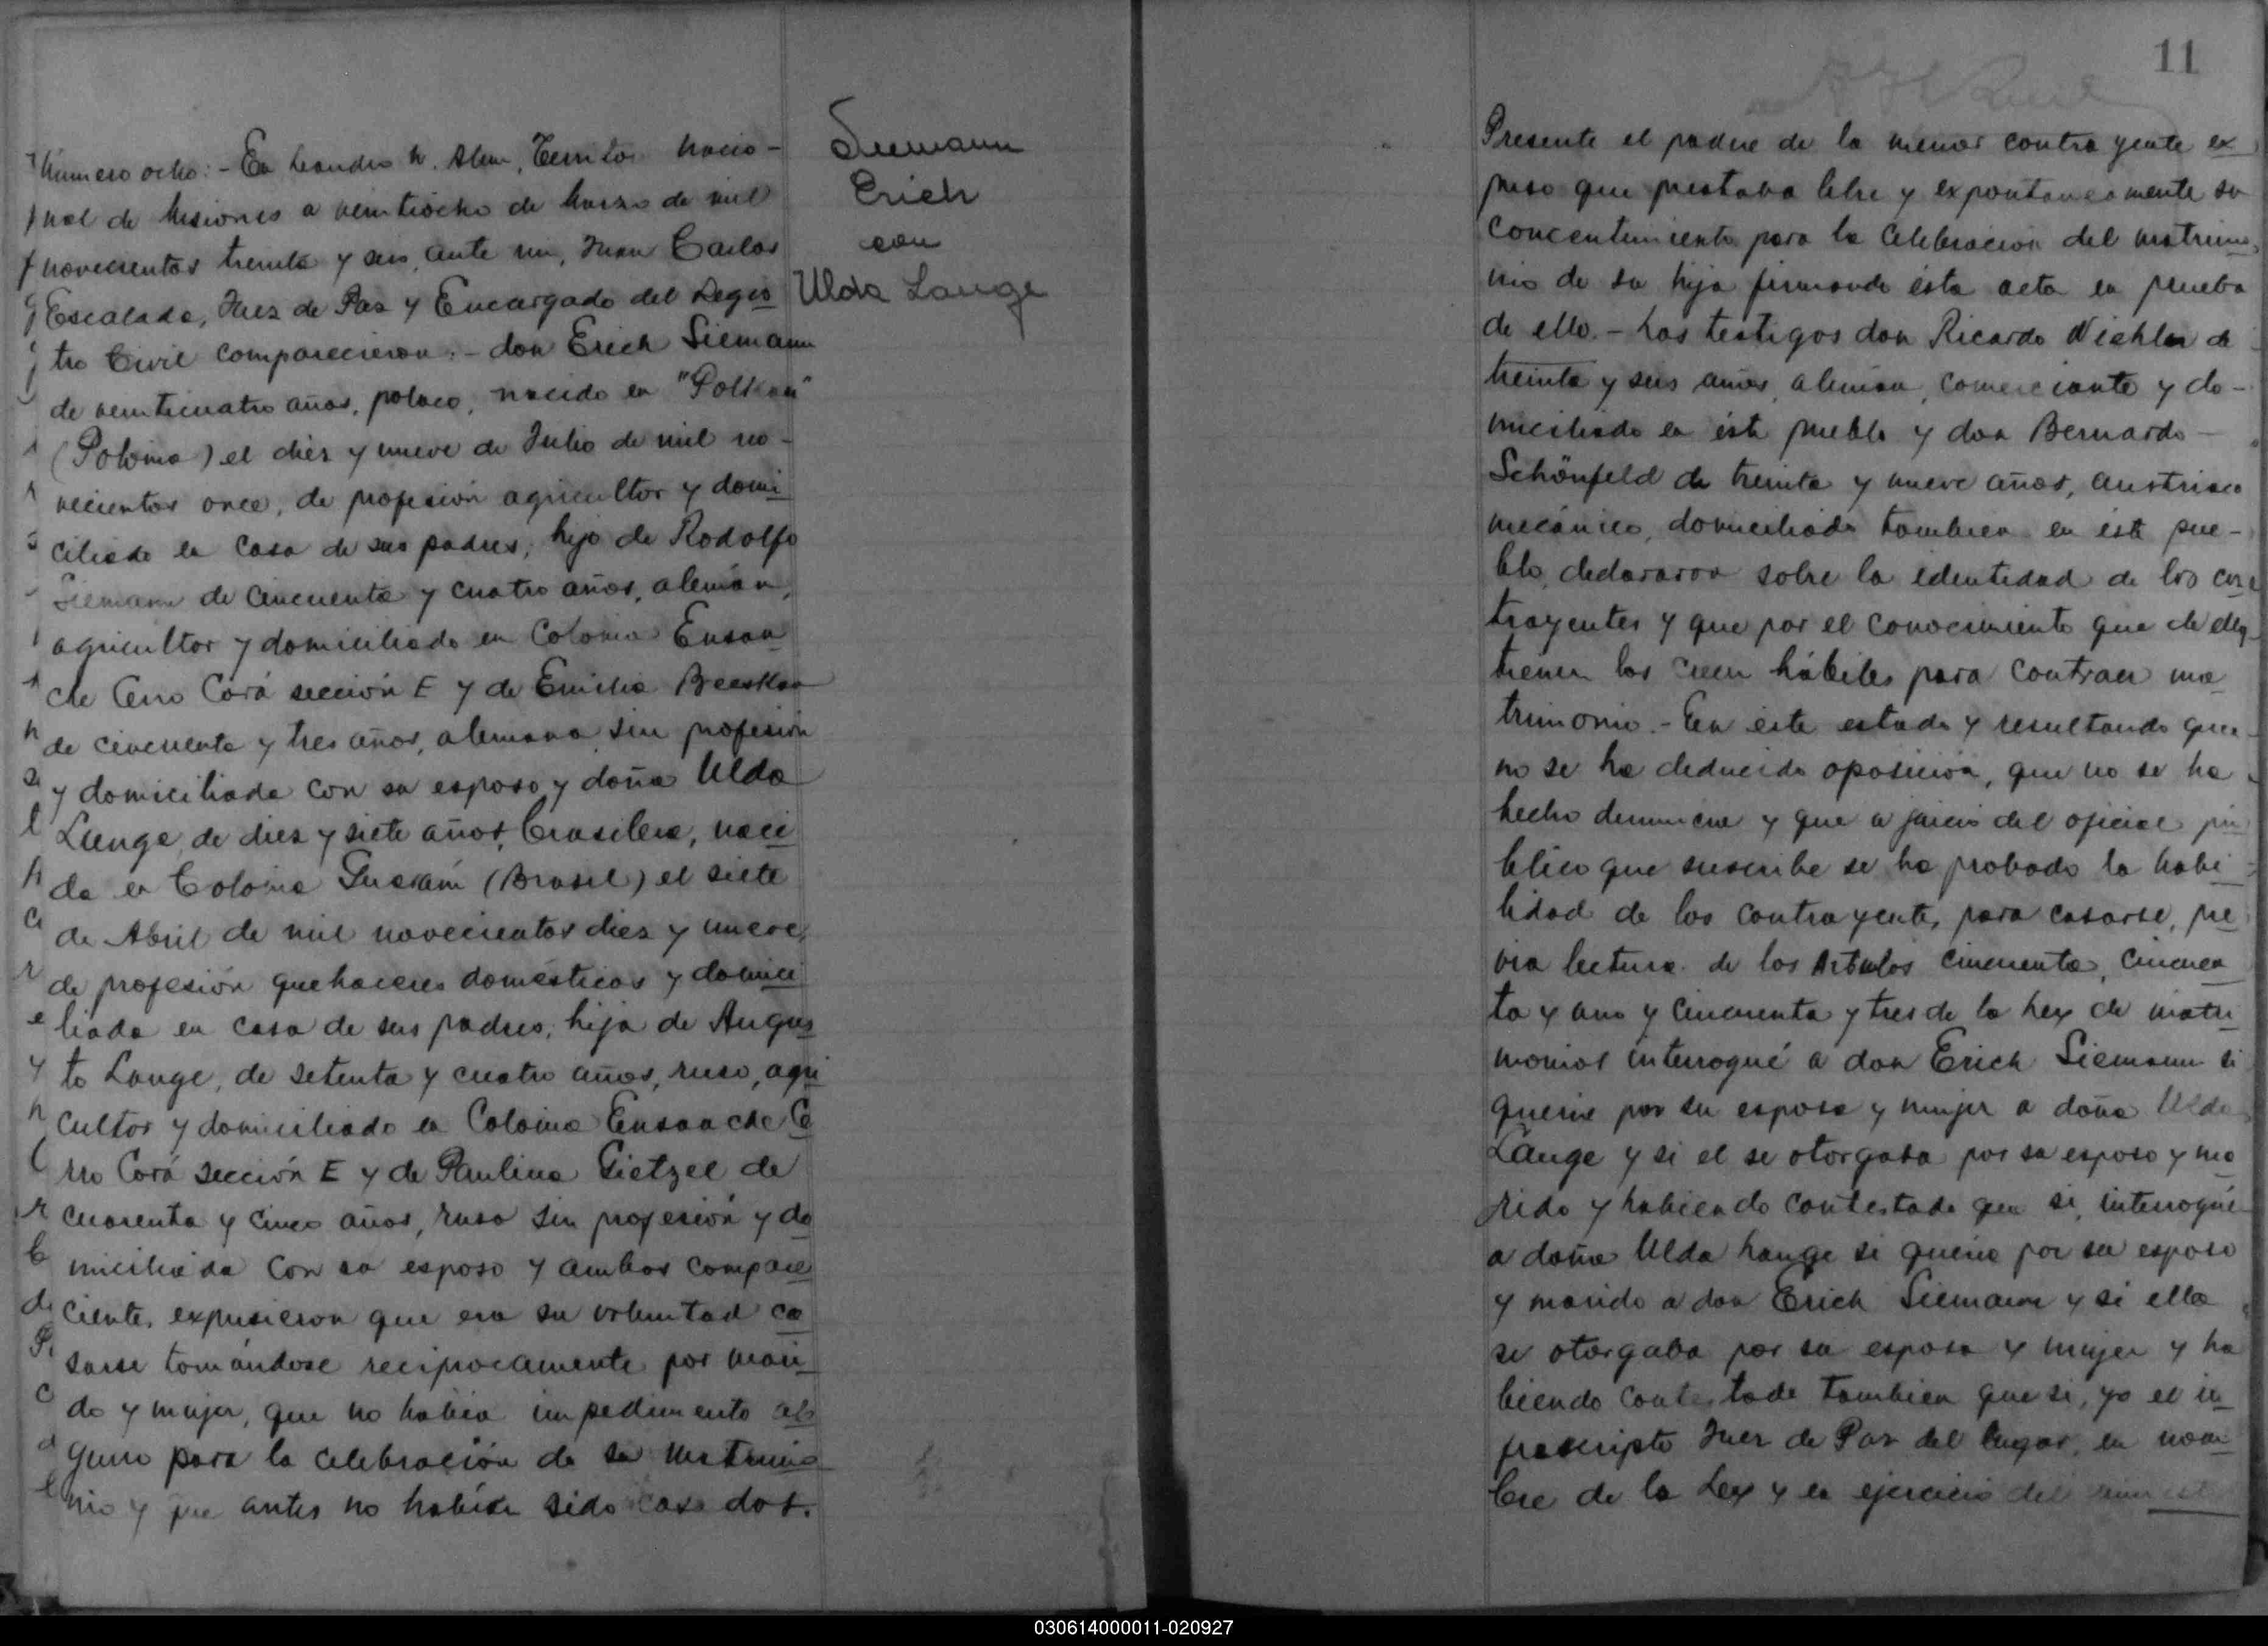 Número ocho:- En Leandro N. Alem, Territo. Nacio-
nal de Misiones a veintiocho de Marzo de mil
novecientos treinta y seis, ante mi, Juan Carlos
Escalada, Juez de Paz y Encargado del Regis
tro Civil comparecieron:- don Erich Siemann
de veinticuatro años, polaco, nacido en
(Polonia) el diez y nueve de Julio de mil no-
vecientos once, de profesión agricultor y domi
ciliado en casa de sus padres, hijo de Rodolfo
Siemann de cincuenta y cuatro años, alemán,
agricultor y domiciliado en Colonia Ensan
che Cerro Corá sección E y de Emilia
de cincuenta y tres años, alemana, sin profesión
y domiciliada con su esposo y doña Ulda
Lange, de diez y siete años, brasilera, naci
da en Colonia Guaraní (Brasil) el siete
de Abril de mil novecientos diez y nueve,
de profesión quehaceres domésticos y domici
liada en casa de sus padres, hija de Augus
to Lange, de setenta y cuatro años, ruso, agri
cultor y domiciliado en Colonia Ensanche Ce
rro Corá sección E y de Paulina Gietzel de
cuarenta y cinco años, rusa sin profesión y do
miciliada con su esposo y ambos compare
ciente, expusieron que era su voluntad ca
sarse tomándose recíprocamente por mari
do y mujer, que no había impedimento al
guno para la celebración de su matrimo
nio y que antes no habían sido casados.
Siemann
Erich
con
Ulda Lange
11
Presente el padre de la menor contrayente ex
puso que prestaba libre y expontaneamente su
concentimiento para la celebración del matrimo
nio de su hija firmando ésta acta en prueba
de ello.- Los testigos don Ricardo de
treinta y seis años, alemán, comerciante y do-
miciliado en éste pueblo y don Bernardo
Schönfeld de treinta y nueve años, austriaco
mecánico, domiciliado tambien en éste pue-
blo, declararon sobre la identidad de los con
trayentes y que por el conocimiento que de ellos
tienen los creen hábiles para contraer ma
trimonio.- En éste estado y resultando que
no se ha deducido oposición, que no se ha
hecho denuncia y que a juicio del oficial pú
blico que suscribe se ha probado la habi
lidad de los contrayente, para casarse, pre
via lectura de los Artículos cincuenta, cincuen
ta y uno y cincuenta y tres de la Ley de matri
monios interrogué a don Erich Siemann si
queria por su esposa y mujer a doña Ulda
Lange y si el se otorgaba por su esposo y ma
rido y habiendo contestado que si, interrogué
a doña Ulda Lange si queria por su esposo
y marido a don Erich Siemann y si ella
se otorgaba por su esposa y mujer y ha
biendo contestado tambien que si, yo el in
frascripto Juez de Paz del lugar, en nom
bre de la Ley y en ejercicio del
030614000011-020927